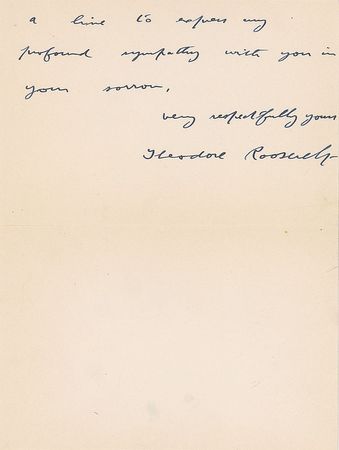 a line to express my
profound sympathy with you in
your sorrow,
very respectfully yours
Theodore Roosevelt